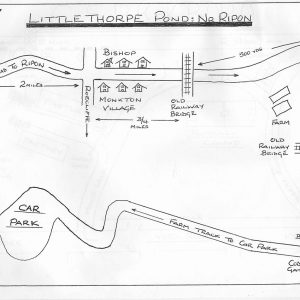 LITTLETHORPE POND: NR RIPON
BISHOP
500 YDS
TO RIPON
2 MILES
MONKTON
VILLAGE
ROECLIFFE
3/4
MILES
OLD
RAILWAY
BRIDGE
FARM
OLD
RAILWAY
BRIDGE
CAR
PARK
FARM TRACK TO CAR PARK